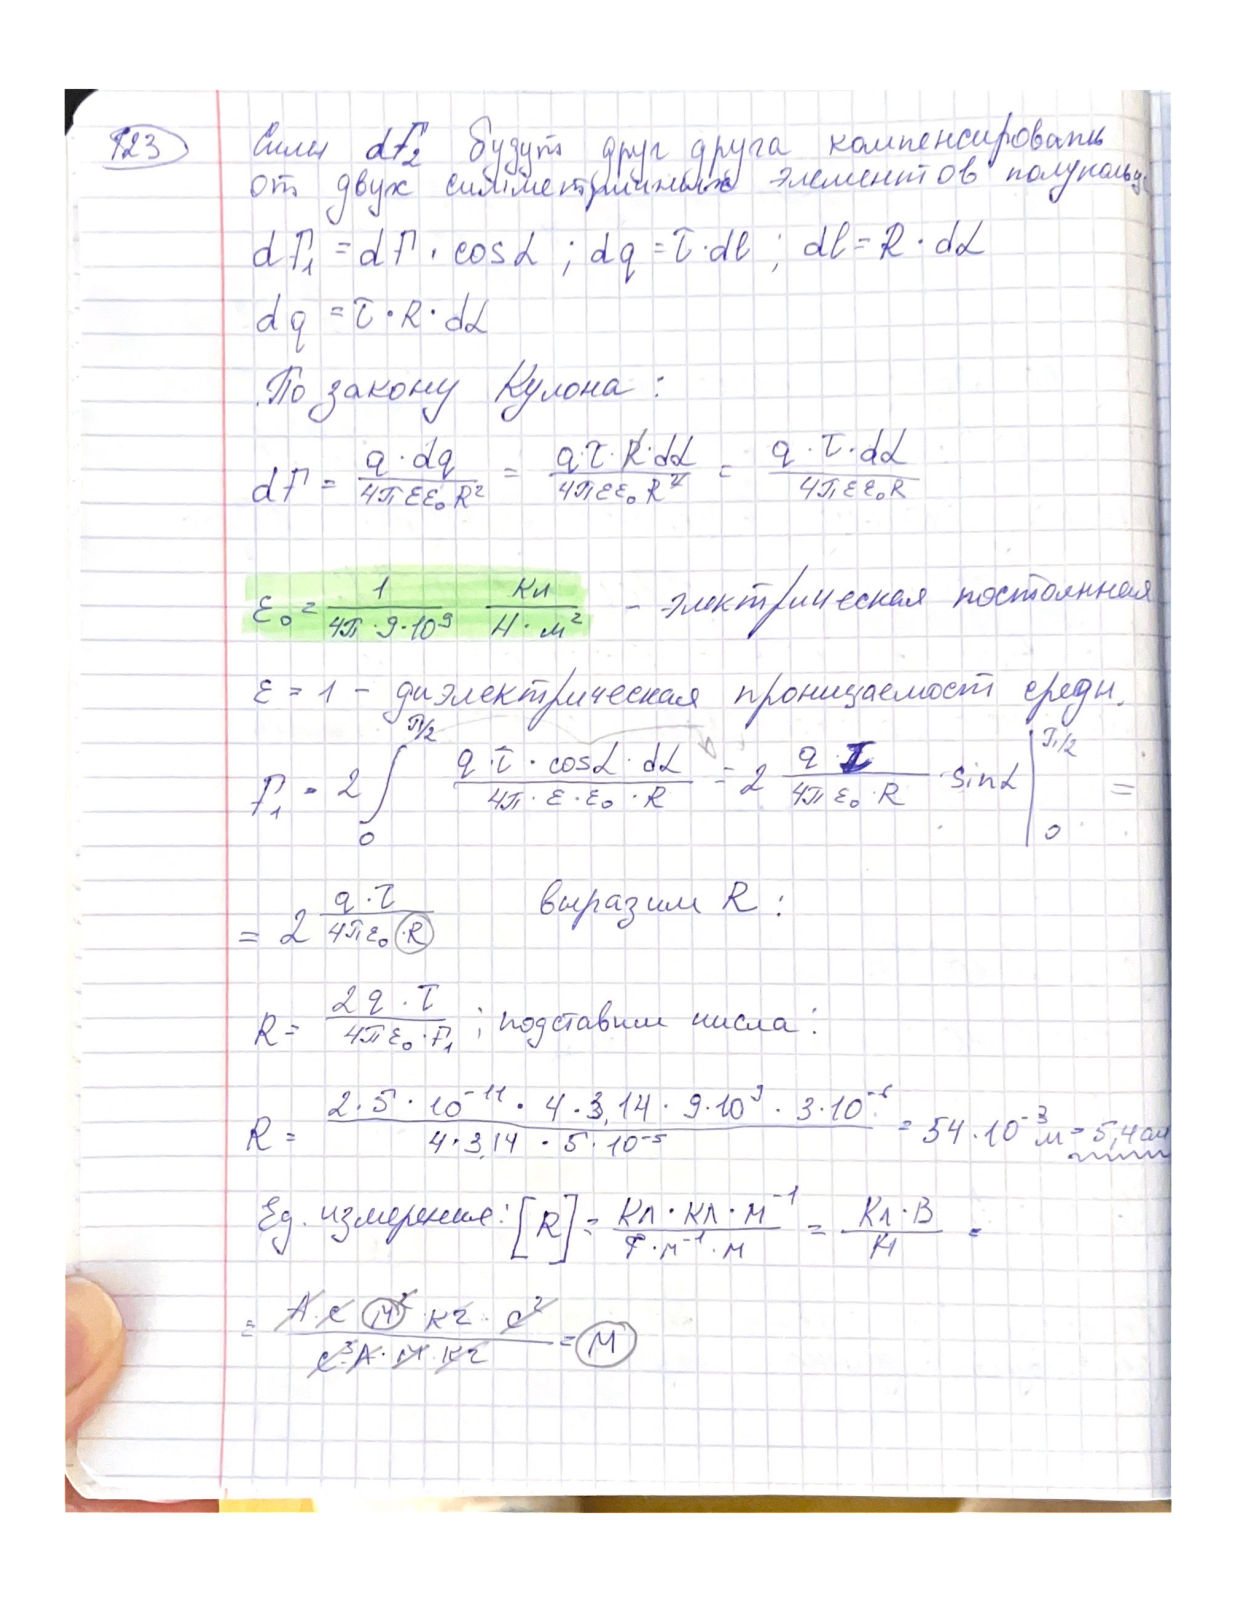 123
Силы dF₂ будут друг друга компенсировать
от двух симметричных элементов полукольц.
dF₁ = dF · cosα ; dq = τ · dl ; dl = R · dα
dq = τ · R · dα
По закону Кулона :
dF = q · dq / 4πεε₀R² = q · τ · R · dα / 4πεε₀R² = q · τ · dα / 4πεε₀R
ε₀ = 1 / 4π · 9 · 10⁹ Кл / Н · м² - электрическая постоянная
ε = 1 - диэлектрическая проницаемост среды.
F₁ = 2 ∫₀^π/2 q · τ · cosα · dα / 4π · ε · ε₀ · R = 2 q · τ / 4πε₀ · R · sinα |₀^π/2 =
= 2 q · τ / 4πε₀ · R выразим R :
R = 2q · τ / 4πε₀ · F₁ ; подставим числа :
R = 2 · 5 · 10⁻¹¹ · 4 · 3,14 · 9 · 10⁹ · 3 · 10⁻⁶ / 4 · 3,14 · 5 · 10⁻⁵ = 54 · 10⁻³ м = 5,4 см
Ед. измерения : [R] = Кл · Кл · м⁻¹ / Ф · м⁻¹ · м = Кл · В / Н =
= А · с · м² · кг · с² / с³ · А · м · кг = м